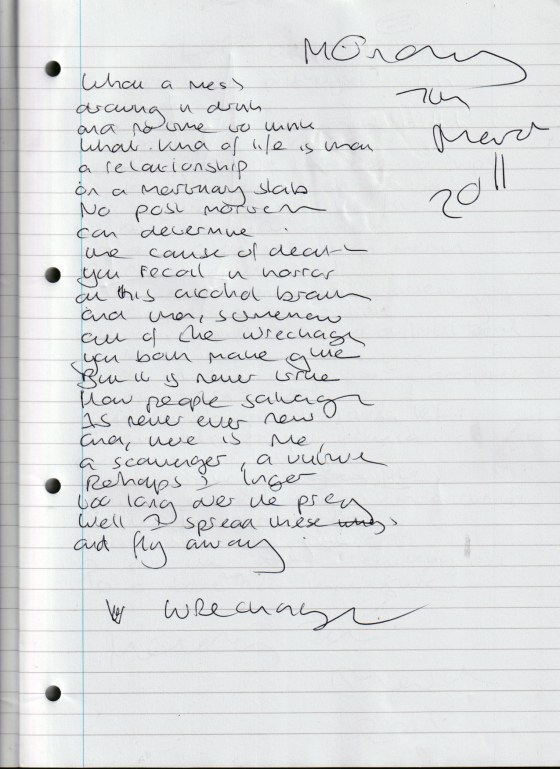 Monday
7th
March
2011
What a mess
drawing in drink
and no time to think
What kind of life is than
a relationship
on a mortuary slab
No post mortem
can determine
the cause of death
you recoil in horror
at this alcohol brain
and then, somehow
out of the wreckage
you both make glue
But it is never
How people salvage
Is never ever new
And, here is me,
a scavenger, a vulture
Perhaps I linger
too long over the prey
Well I spread these wings
and fly away
Wreckage